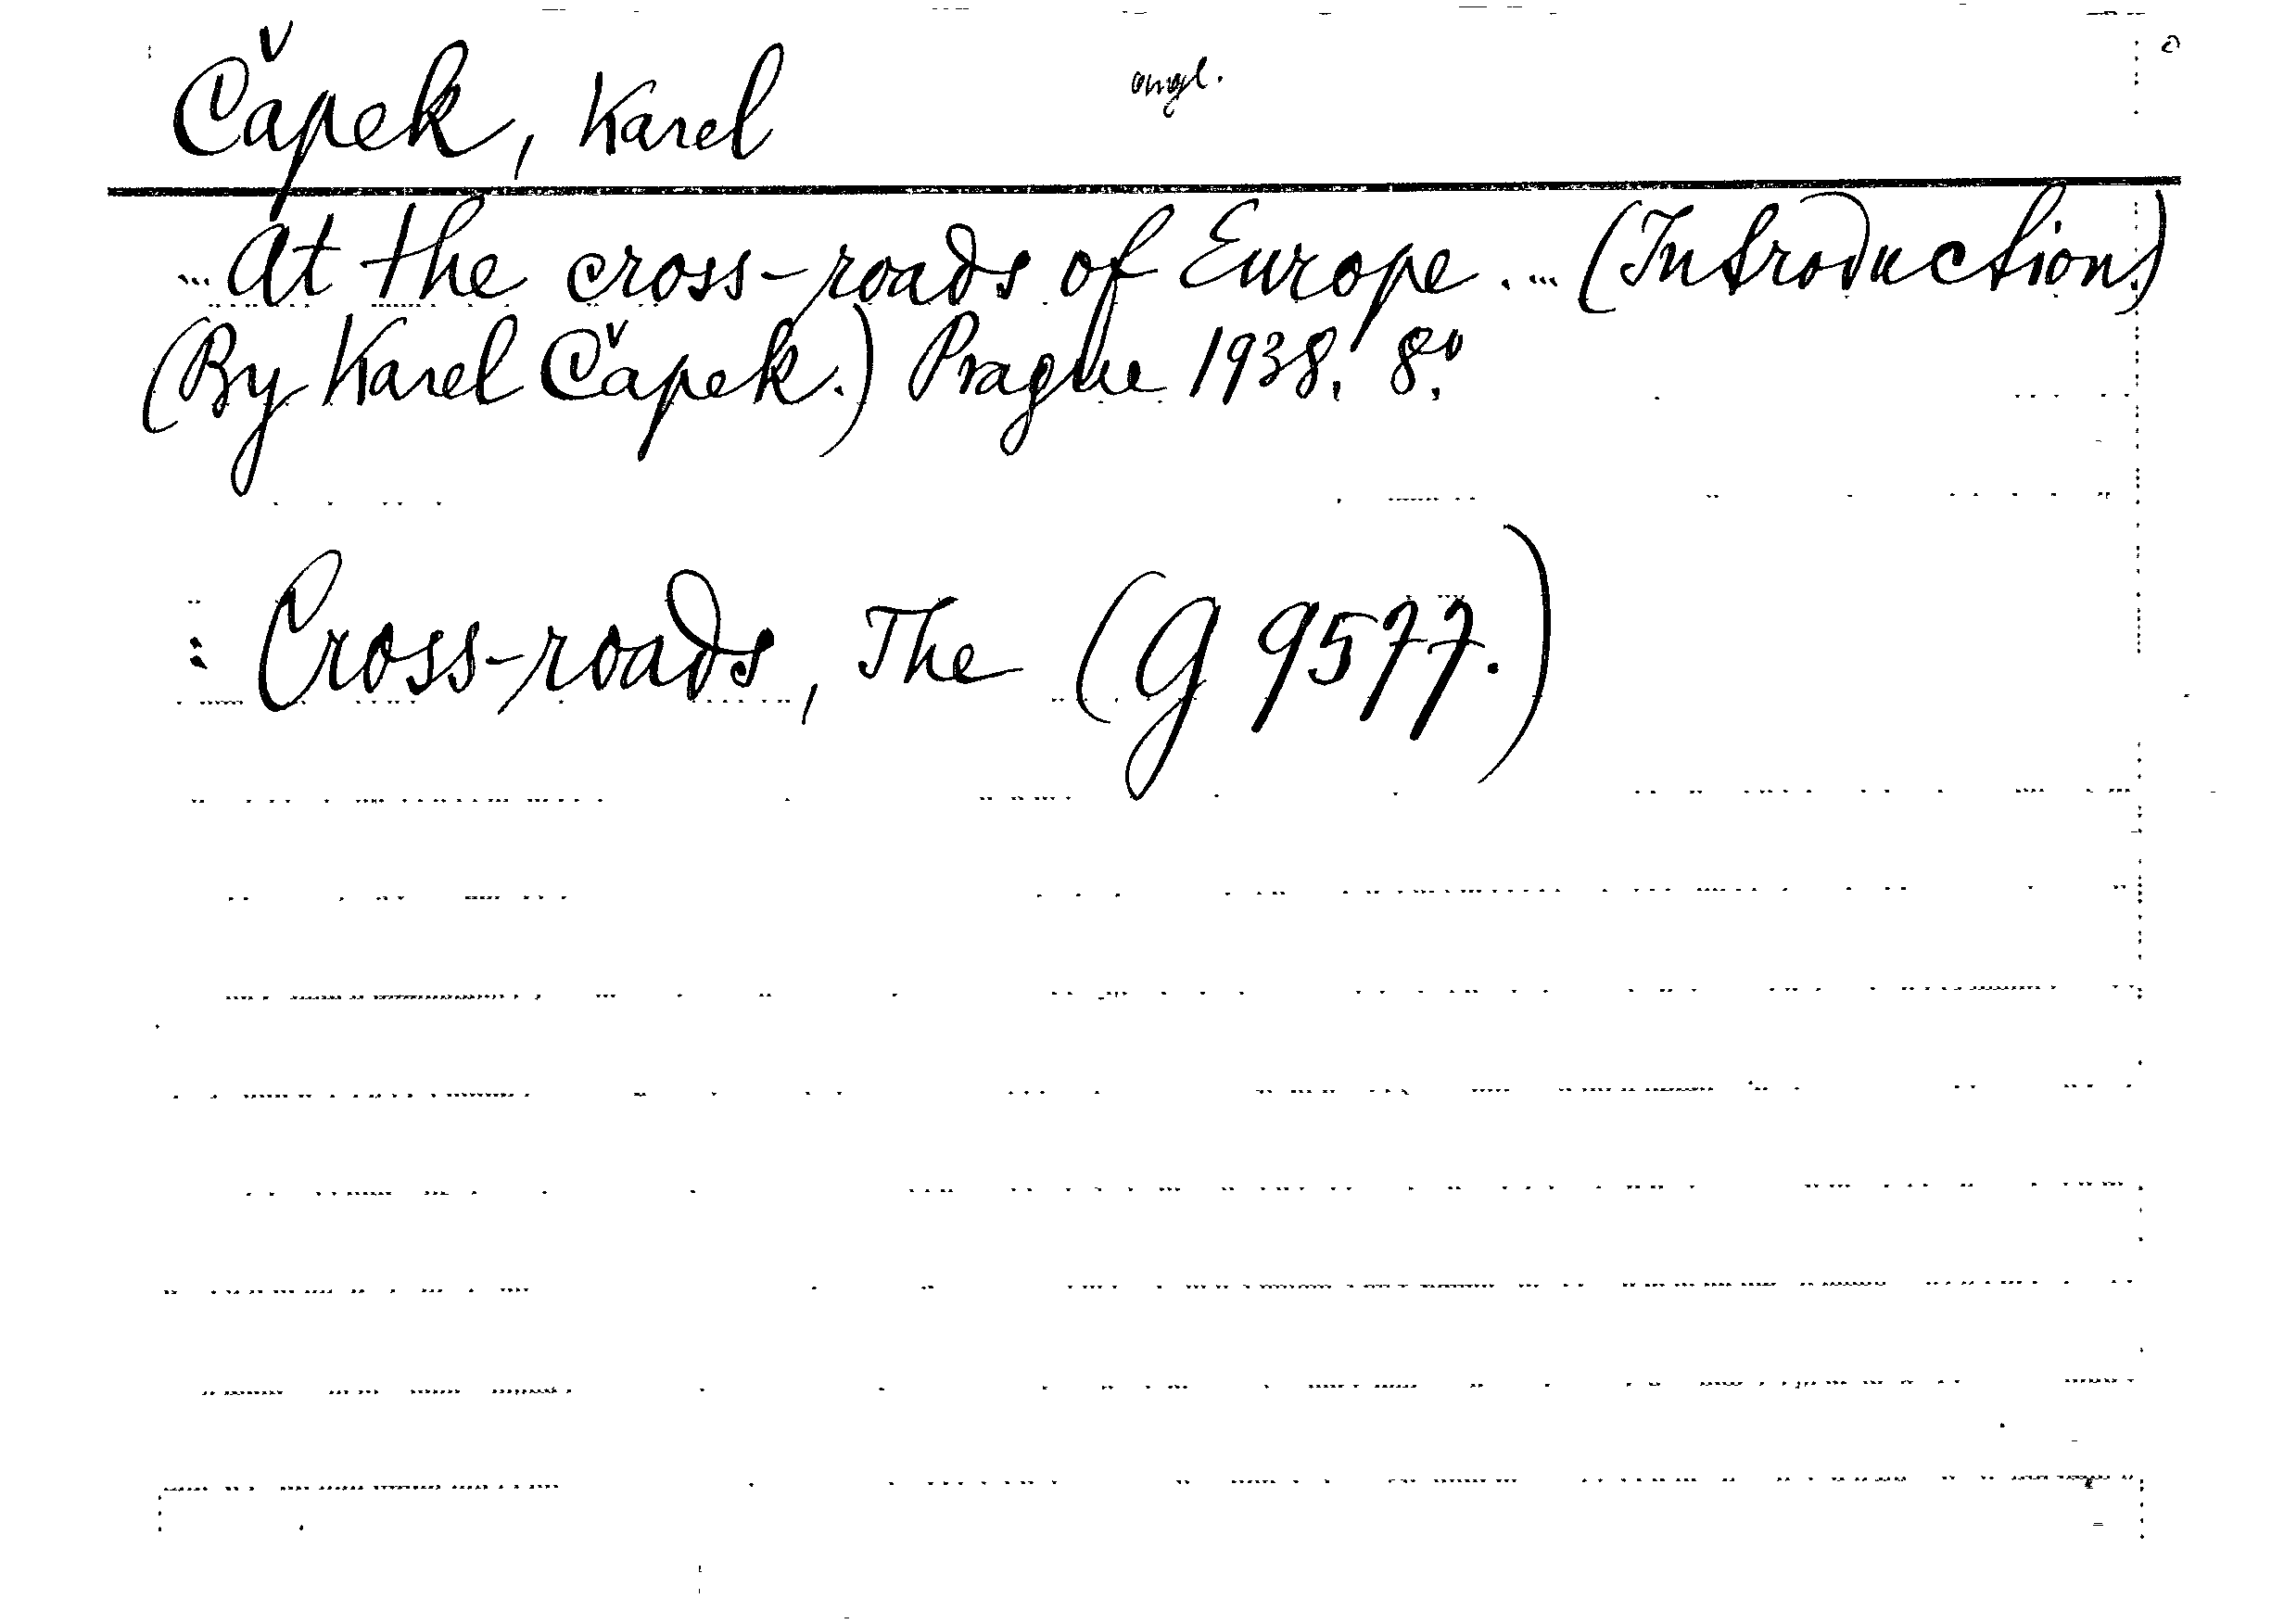 Čapek, Karel angl.
... At the cross-roads of Europe. ... (Introduction.)
(By Karel Čapek.) Prague 1938. 8.º
: Cross-roads, The (G 9577.)